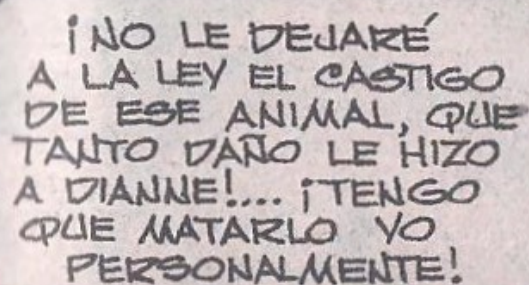 ¡NO LE DEJARÉ
A LA LEY EL CASTIGO
DE ESE ANIMAL, QUE
TANTO DAÑO LE HIZO
A DIANNE!... ¡TENGO
QUE MATARLO YO
PERSONALMENTE!